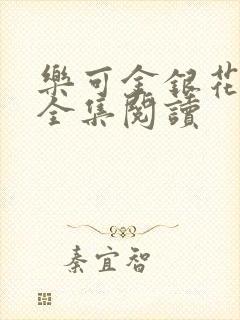 樂可金銀花
全集閱讀
秦宜智